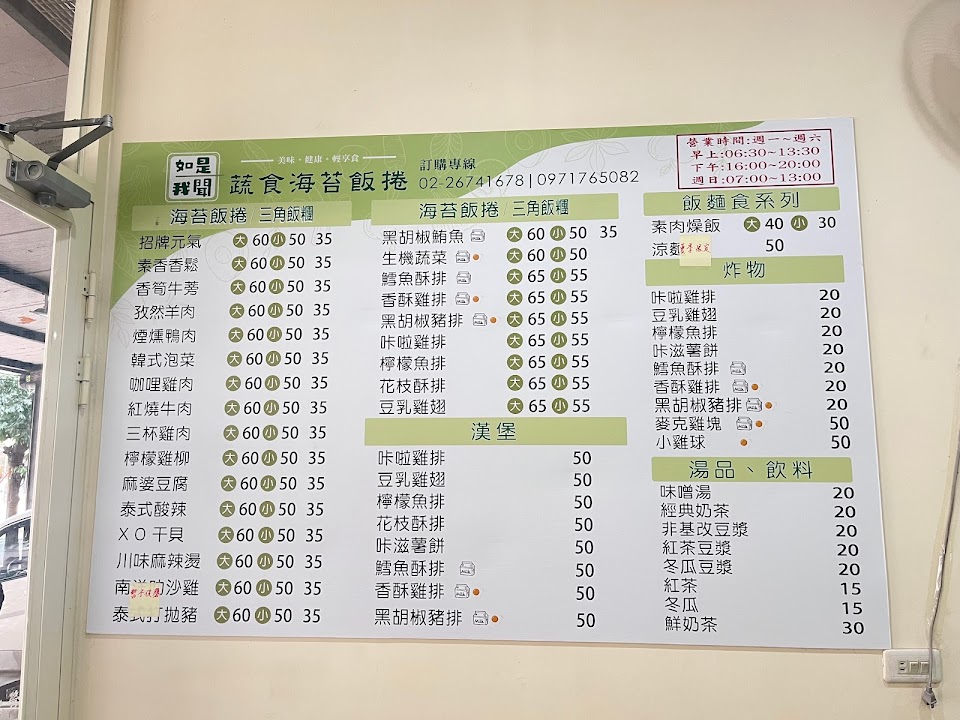 如是我聞
美味·健康·輕享食
蔬食海苔飯捲
訂購專線
02-26741678 | 0971765082
營業時間:週一~週六
早上:06:30~13:30
下午:16:00~20:00
週日:07:00~13:00
海苔飯捲 三角飯糰
招牌元氣 大 60 小 50 35
素香香鬆 大 60 小 50 35
香筍牛蒡 大 60 小 50 35
孜然羊肉 大 60 小 50 35
煙燻鴨肉 大 60 小 50 35
韓式泡菜 大 60 小 50 35
咖哩雞肉 大 60 小 50 35
紅燒牛肉 大 60 小 50 35
三杯雞肉 大 60 小 50 35
檸檬雞柳 大 60 小 50 35
麻婆豆腐 大 60 小 50 35
泰式酸辣 大 60 小 50 35
XO干貝 大 60 小 50 35
川味麻辣燙 大 60 小 50 35
南洋 沙雞 大 60 小 50 35
泰式打拋豬 大 60 小 50 35
海苔飯捲/三角飯糰
黑胡椒鮪魚 大 60 小 50 35
生機蔬菜 大 60 小 50
鱈魚酥排 大 65 小 55
香酥雞排 大 65 小 55
黑胡椒豬排 大 65 小 55
咔啦雞排 大 65 小 55
檸檬魚排 大 65 小 55
花枝酥排 大 65 小 55
豆乳雞翅 大 65 小 55
漢堡
咔啦雞排 50
豆乳雞翅 50
檸檬魚排 50
花枝酥排 50
咔滋薯餅 50
鱈魚酥排 50
香酥雞排 50
黑胡椒豬排 50
飯麵食系列
素肉燥飯 大 40 小 30
涼麵 50
炸物
咔啦雞排 20
豆乳雞翅 20
檸檬魚排 20
咔滋薯餅 20
鱈魚酥排 20
香酥雞排 20
黑胡椒豬排 20
麥克雞塊 50
小雞球 50
湯品、飲料
味噌湯 20
經典奶茶 20
非基改豆漿 20
紅茶豆漿 20
冬瓜豆漿 20
紅茶 15
冬瓜 15
鮮奶茶 30